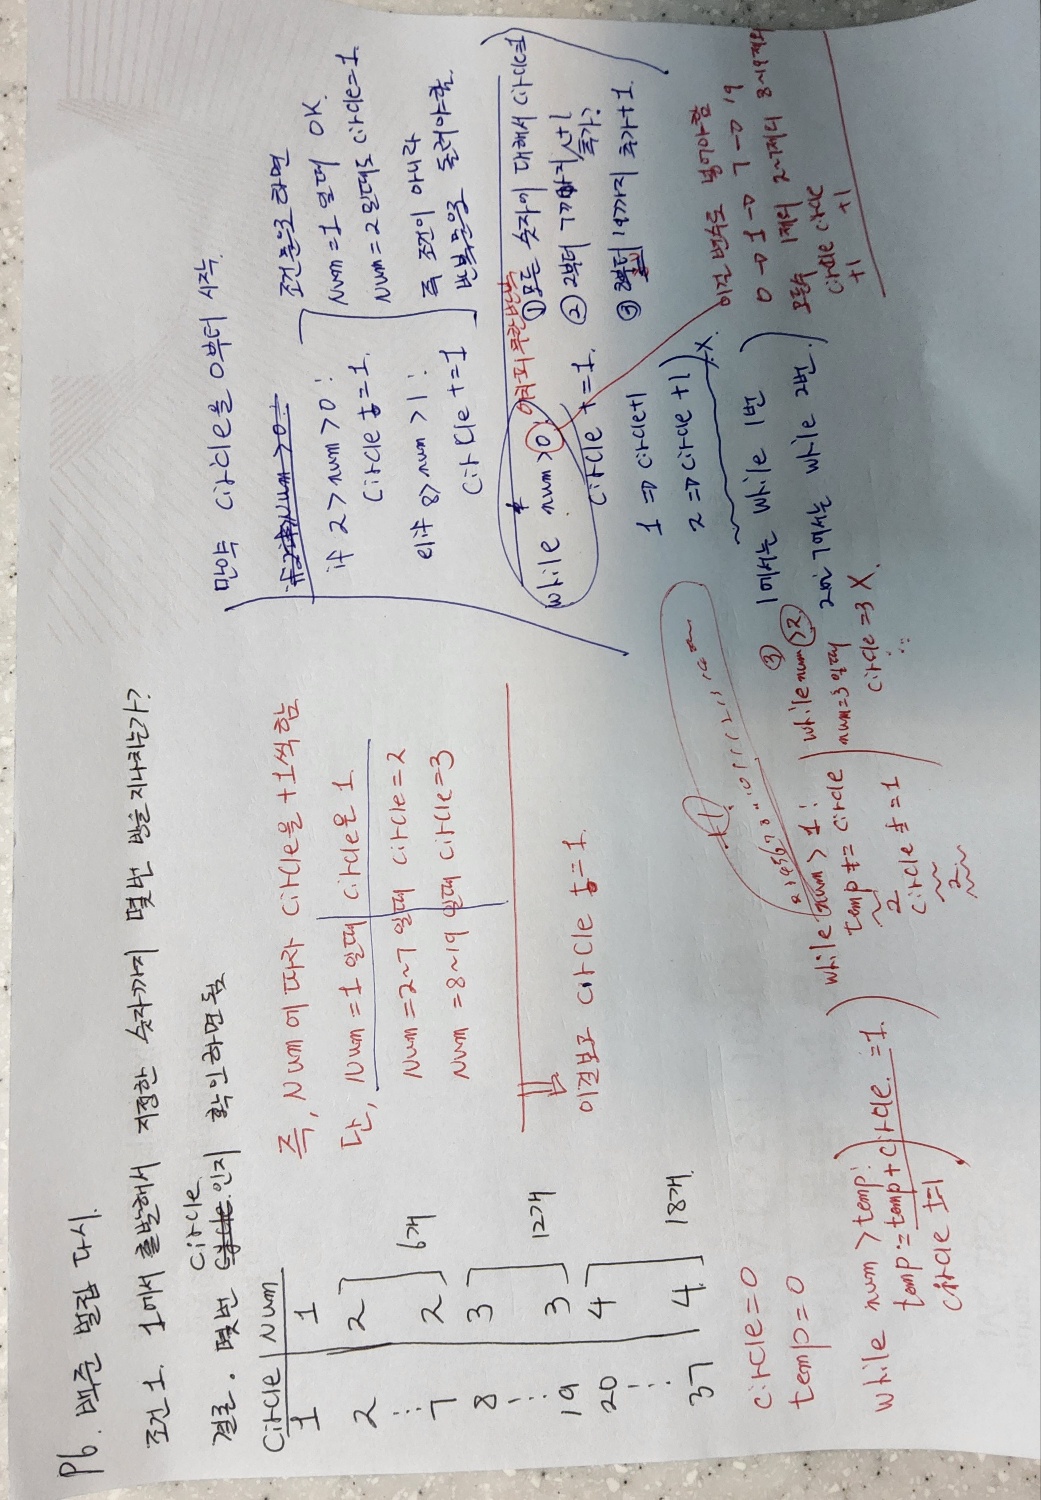 P6. 백준 벌집 다시.
조건 1. 1에서 출발해서 지정한 숫자까지 몇번 방을 지나치는가?
결론. 몇번 circle인지 확인하면 됨
circle Num
1 1
2 2
⋮ 6개
7 2
8 3
⋮ 12개
19 3
20 4
⋮ 18개
37 4
즉, Num에 따라 circle을 +1씩 함
단, Num=1 일때 circle은 1
Num=2~7 일때 circle=2
Num=8~19 일때 circle=3
이걸보고 circle += 1
circle=0
temp=0
while num > temp:
temp = temp + circle
circle += 1
while num > 1:
temp += circle
2
circle += 1
2
③
while num > 2
num=3 일때
circle = 3 X
만약 circle을 0부터 시작
if 2 > num > 0:
circle += 1
elif 8 > num > 1:
circle += 1
조건문으로 하면
num=1 일때 OK
num=2 일때도 circle=1
즉 조건이 아니라
반복문으로 돌려야함
while num > 0
circle += 1
① 모든 숫자에 대해서 circle=1
② 2부터 7까지 +1 추가?
③ 19까지 추가+1
1 ⇒ circle+1
2 ⇒ circle+1 X
1에서는 while 1번
2에서는 while 2번
이걸 변수로 넣어야함
0→1→7→19
모두 1제외 2~7제외 8~19제외
circle circle
+1 +1